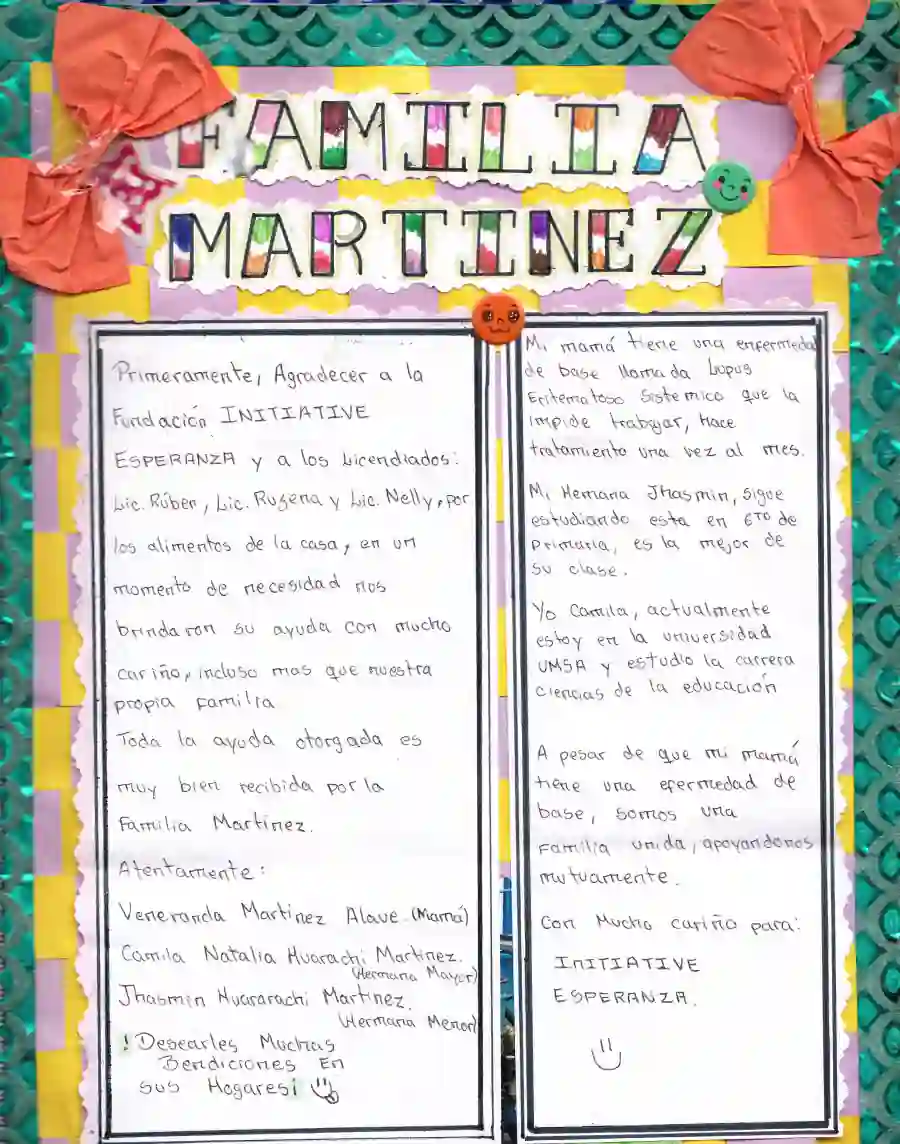 FAMILIA
MARTINEZ
Primeramente, Agradecer a la
Fundación INITIATIVE
ESPERANZA y a los Licendiados:
Lic. Rúben, Lic. Rugena y Lic. Nelly, por
los alimentos de la casa, en un
momento de necesidad nos
brindaron su ayuda con mucho
cariño, incluso mas que nuestra
propia familia
Toda la ayuda otorgada es
muy bien recibida por la
Familia Martinez.
Atentamente:
Veneranda Martinez Alave (Mamá)
Camila Natalia Huarachi Martinez.
(Hermana Mayor)
Jhasmin Huararachi Martinez.
(Hermana Menor)
! Desearles Muchas
Bendiciones En
sus Hogares¡
Mi mamá tiene una enfermedad
de base llamada Lupus
Eritematoso Sistemico que la
impide trabajar, hace
tratamiento una vez al mes.
Mi Hemana Jhasmin, sigue
estudiando esta en 6TO de
primaria, es la mejor de
su clase.
Yo Camila, actualmente
estoy en la universidad
UMSA y estudio la carrera
ciencias de la educación
A pesar de que mi mamá
tiene una efermedad de
base, somos una
familia unida, apoyandonos
mutuamente.
Con Mucho cariño para:
INITIATIVE
ESPERANZA.